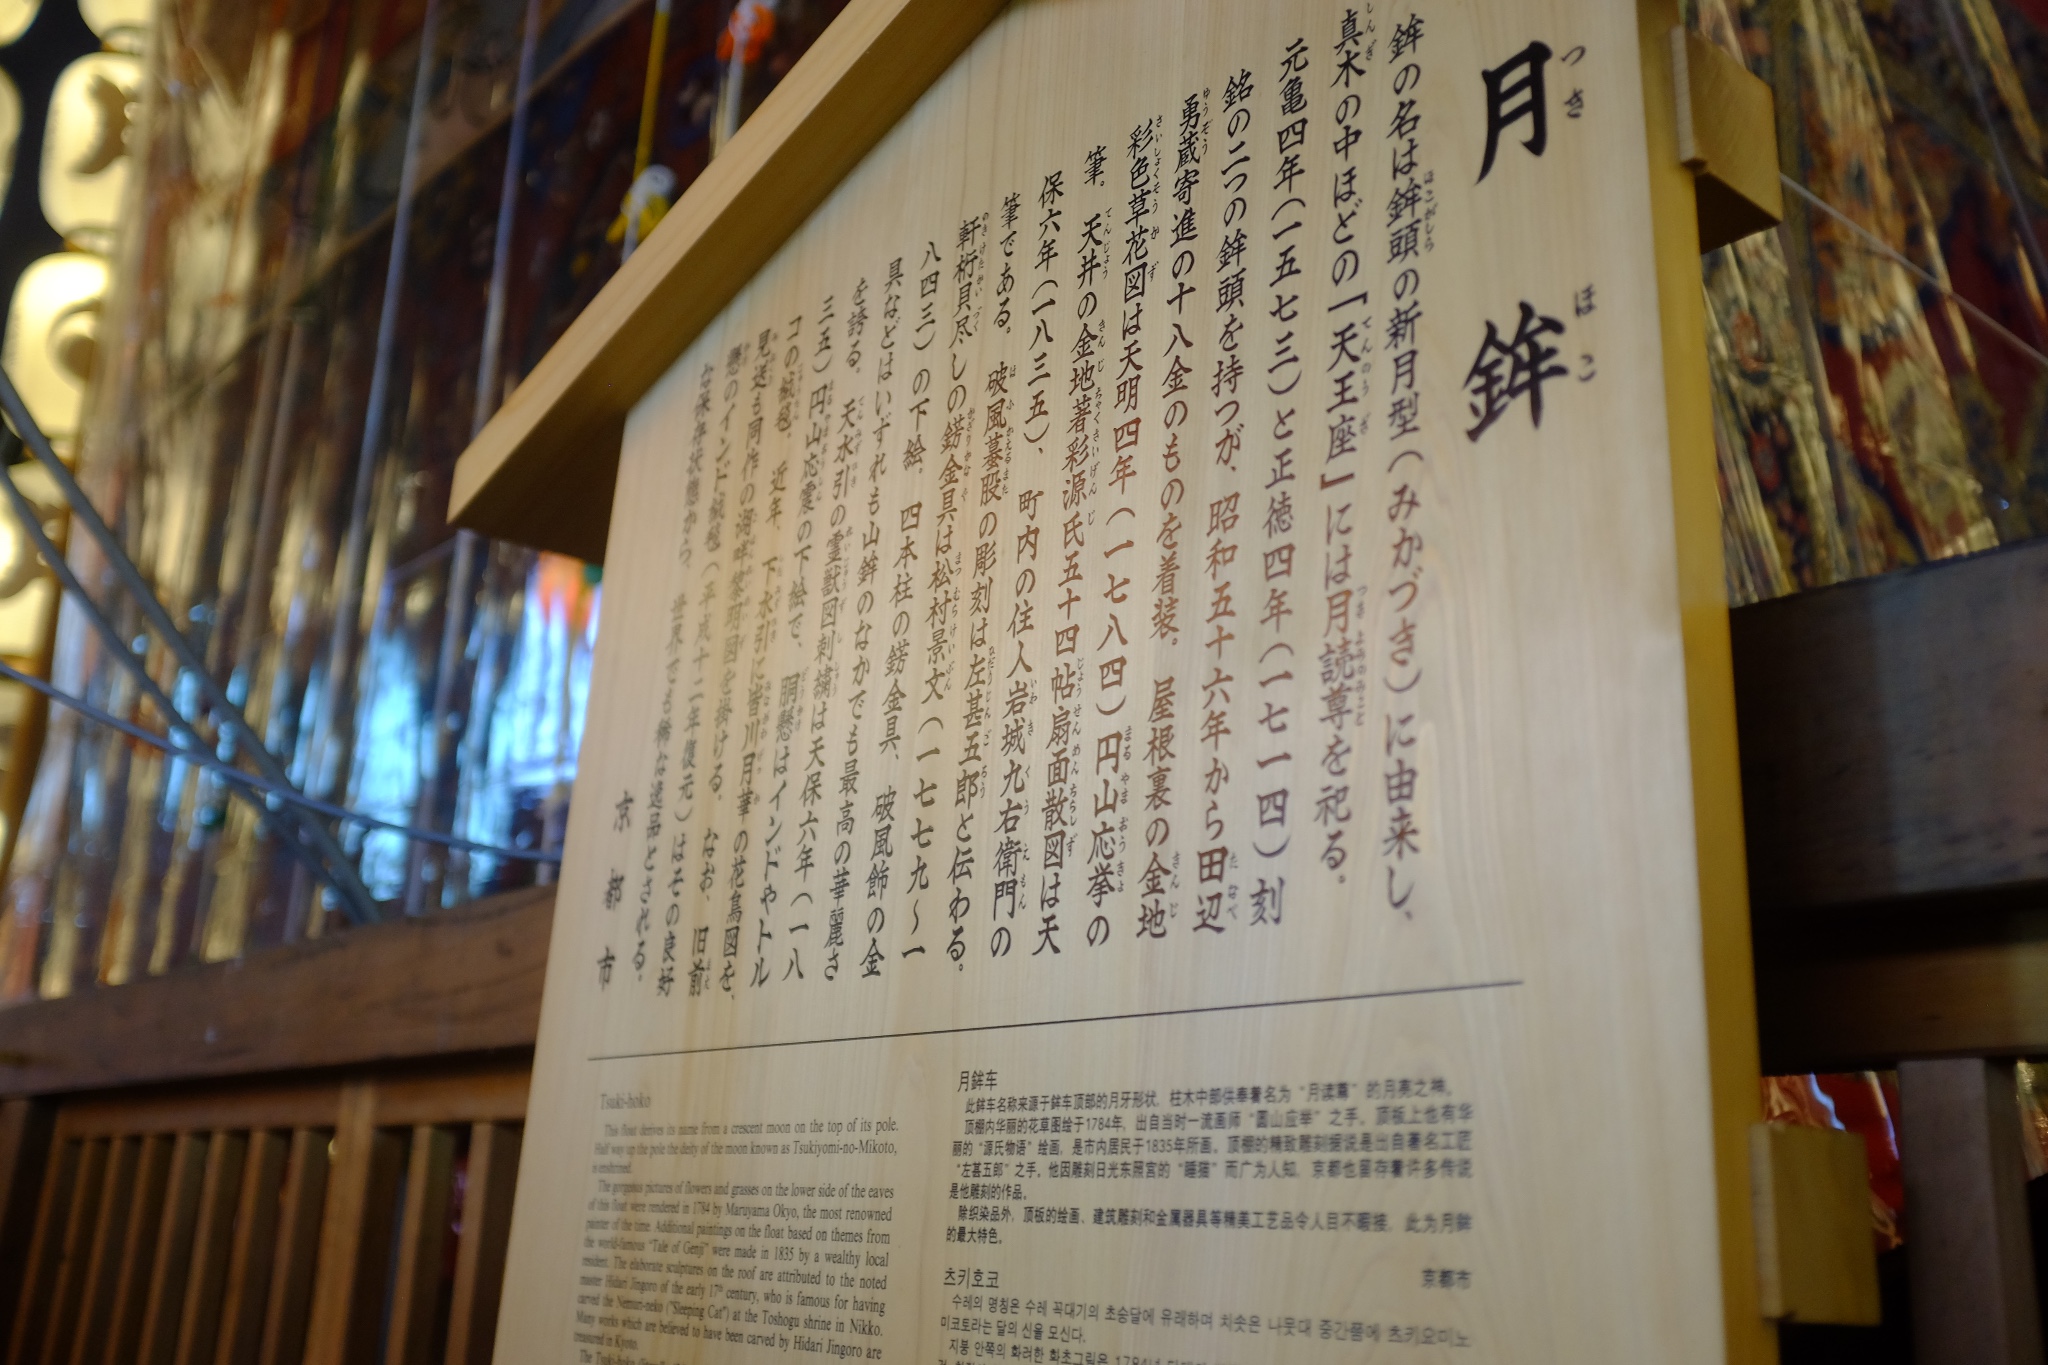 月鉾
つきほこ
鉾の名は鉾頭の新月型(みかづき)に由来し、
真木の中ほどの「天王座」には月読尊を祀る。
元亀四年(一五七三)と正徳四年(一七一四)刻
銘の二つの鉾頭を持つが、昭和五十六年から田辺
勇蔵寄進の十八金のものを着装。屋根裏の金地
彩色草花図は天明四年(一七八四)円山応挙の
筆。天井の金地著彩源氏五十四帖扇面散図は天
保六年(一八三五)、町内の住人岩城九右衛門の
筆である。破風蟇股の彫刻は左甚五郎と伝わる。
軒桁貝尽しの錺金具は松村景文(一七七九〜一
八四三)の下絵。四本柱の錺金具、破風飾の金
具などはいずれも山鉾のなかでも最高の華麗さ
を誇る。天水引の霊獣図刺繍は天保六年(一八
三五)円山応震の下絵で、胴懸はインドやトル
コの絨毯。近年、下水引に皆川月華の花鳥図を、
見送も同作の黎明図を掛ける。なお、旧前
懸のインド絨毯(平成十二年復元)はその良好
な保存状態から、世界でも稀な逸品とされる。
京都市
Tsuki-hoko
This float derives its name from a crescent moon on the top of its pole.
Half way up the pole the deity of the moon known as Tsukiyomi-no-Mikoto,
is enshrined.
The gorgeous pictures of flowers and grasses on the lower side of the eaves
of this float were rendered in 1784 by Maruyama Okyo, the most renowned
painter of the time. Additional paintings on the float based on themes from
the world-famous "Tale of Genji" were made in 1835 by a wealthy local
resident. The elaborate sculptures on the roof are attributed to the noted
master Hidari Jingoro of the early 17th century, who is famous for having
carved the Nemuri-neko ("Sleeping Cat") at the Toshogu shrine in Nikko.
Many works which are believed to have been carved by Hidari Jingoro are
treasured in Kyoto.
The Tsuki-hoko
月鉾车
此鉾车名称来源于鉾车顶部的月牙形状,柱木中部供奉著名为“月读尊”的月亮之神。
顶棚内华丽的花草图绘于1784年,出自当时一流画师“圆山应举”之手。顶板上也有华
丽的“源氏物语”绘画,是市内居民于1835年所画。顶棚的精致雕刻据说是出自著名工匠
“左甚五郎”之手。他因雕刻日光东照宫的“睡猫”而广为人知,京都也留存着许多传说
是他雕刻的作品。
除织染品外,顶板的绘画、建筑雕刻和金属器具等精美工艺品令人目不暇接,此为月鉾
的最大特色。
京都市
츠키호코
수레의 명칭은 수레 꼭대기의 초승달에 유래하며 치솟은 나뭇대 중간쯤에 츠키요미노
미코토라는 달의 신을 모신다.
지붕 안쪽의 화려한 화초그림은 1784년